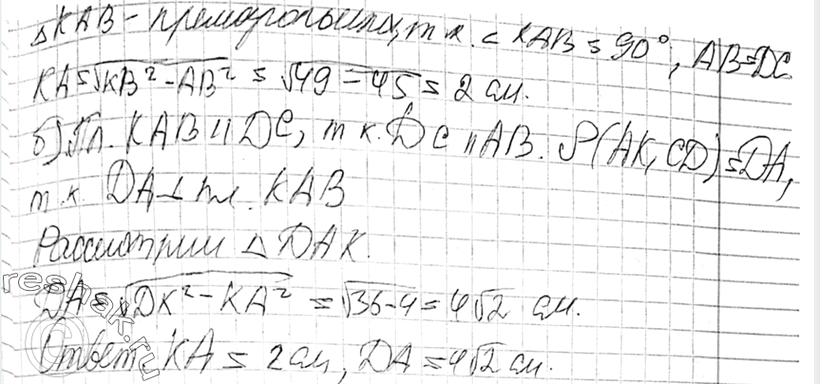 △KAB - прямоугольный, т.к. ∠KAB = 90°, AB=DC
KA=√KB²-AB² = √49-45 = 2 см.
б) Пл. KAB || DC, т.к. DC || AB. ρ(AK, CD)=DA,
т.к. DA⊥ пл. KAB
Рассмотрим △DAK.
DA=√DK²-KA² = √36-4 = 4√2 см.
Ответ: KA = 2 см, DA = 4√2 см.
reshak.ru